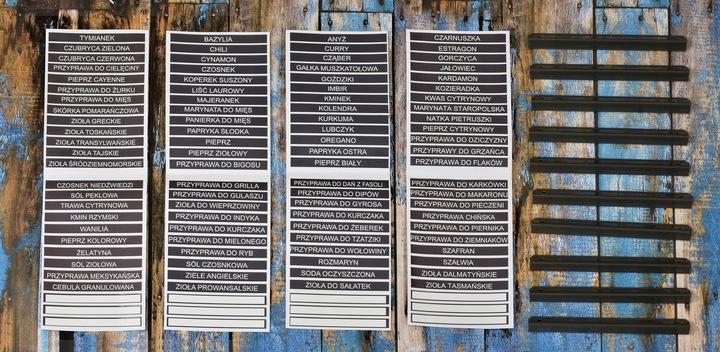 TYMIANEK
CZUBRYCA ZIELONA
CZUBRYCA CZERWONA
PRZYPRAWA DO CIELĘCINY
PIEPRZ CAYENNE
PRZYPRAWA DO ŻURKU
PRZYPRAWA DO MIĘS
SKÓRKA POMARAŃCZOWA
ZIOŁA GRECKIE
ZIOŁA TOSKAŃSKIE
ZIOŁA TRANSYLWAŃSKIE
ZIOŁA TAJSKIE
ZIOŁA ŚRÓDZIEMNOMORSKIE
CZOSNEK NIEDŹWIEDZI
SÓL PEKLOWA
TRAWA CYTRYNOWA
KMIN RZYMSKI
WANILIA
PIEPRZ KOLOROWY
ŻELATYNA
SÓL ZIOŁOWA
PRZYPRAWA MEKSYKAŃSKA
CEBULA GRANULOWANA
BAZYLIA
CHILI
CYNAMON
CZOSNEK
KOPEREK SUSZONY
LIŚĆ LAUROWY
MAJERANEK
MARYNATA DO MIĘS
PANIERKA DO MIĘS
PAPRYKA SŁODKA
PIEPRZ
PIEPRZ ZIOŁOWY
PRZYPRAWA DO BIGOSU
PRZYPRAWA DO GRILLA
PRZYPRAWA DO GULASZU
ZIOŁA DO WIEPRZOWINY
PRZYPRAWA DO INDYKA
PRZYPRAWA DO KURCZAKA
PRZYPRAWA DO MIELONEGO
PRZYPRAWA DO RYB
SÓL CZOSNKOWA
ZIELE ANGIELSKIE
ZIOŁA PROWANSALSKIE
ANYŻ
CURRY
CZĄBER
GAŁKA MUSZKATOŁOWA
GOŹDZIKI
IMBIR
KMINEK
KOLENDRA
KURKUMA
LUBCZYK
OREGANO
PAPRYKA OSTRA
PIEPRZ BIAŁY
PRZYPRAWA DO DAŃ Z FASOLI
PRZYPRAWA DO DIPÓW
PRZYPRAWA DO GYROSA
PRZYPRAWA DO KURCZAKA
PRZYPRAWA DO ŻEBEREK
PRZYPRAWA DO TZATZIKI
PRZYPRAWA DO WOŁOWINY
ROZMARYN
SODA OCZYSZCZONA
ZIOŁA DO SAŁATEK
CZARNUSZKA
ESTRAGON
GORCZYCA
JAŁOWIEC
KARDAMON
KOZIERADKA
KWAS CYTRYNOWY
MARYNATA STAROPOLSKA
NATKA PIETRUSZKI
PIEPRZ CYTRYNOWY
PRZYPRAWA DO DZICZYZNY
PRZYPRAWY DO GRZAŃCA
PRZYPRAWA DO FLAKÓW
PRZYPRAWA DO KARKÓWKI
PRZYPRAWA DO MAKARONU
PRZYPRAWA DO PIECZENI
PRZYPRAWA CHIŃSKA
PRZYPRAWA DO PIERNIKA
PRZYPRAWA DO ZIEMNIAKÓW
SZAFRAN
SZAŁWIA
ZIOŁA DALMATYŃSKIE
ZIOŁA TASMAŃSKIE